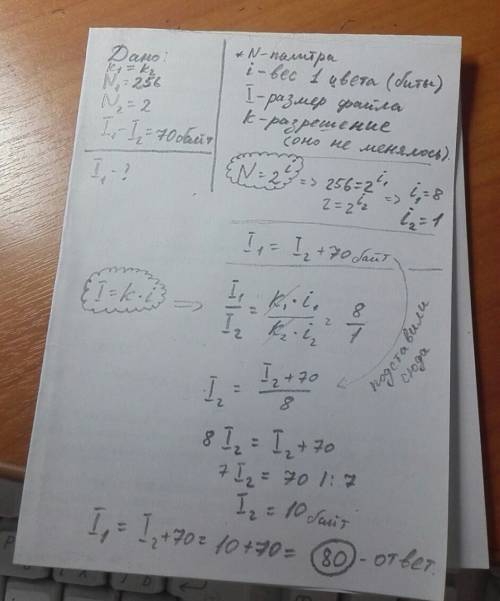 Дано:
k₁ = k₂
N₁ = 256
N₂ = 2
I₁ - I₂ = 70 байт
I₁ - ?
* N - палитра
i - вес 1 цвета (биты)
I - размер файла
k - разрешение
(оно не менялось).
N = 2^i => 256 = 2^i₁ => i₁ = 8
2 = 2^i₂ i₂ = 1
I₁ = I₂ + 70 байт
I = k · i => I₁/I₂ = k₁ · i₁ / k₂ · i₂ = 8/1
подставили
сюда
I₂ = I₂ + 70 / 8
8 I₂ = I₂ + 70
7 I₂ = 70 | : 7
I₂ = 10 байт
I₁ = I₂ + 70 = 10 + 70 = 80 - ответ.